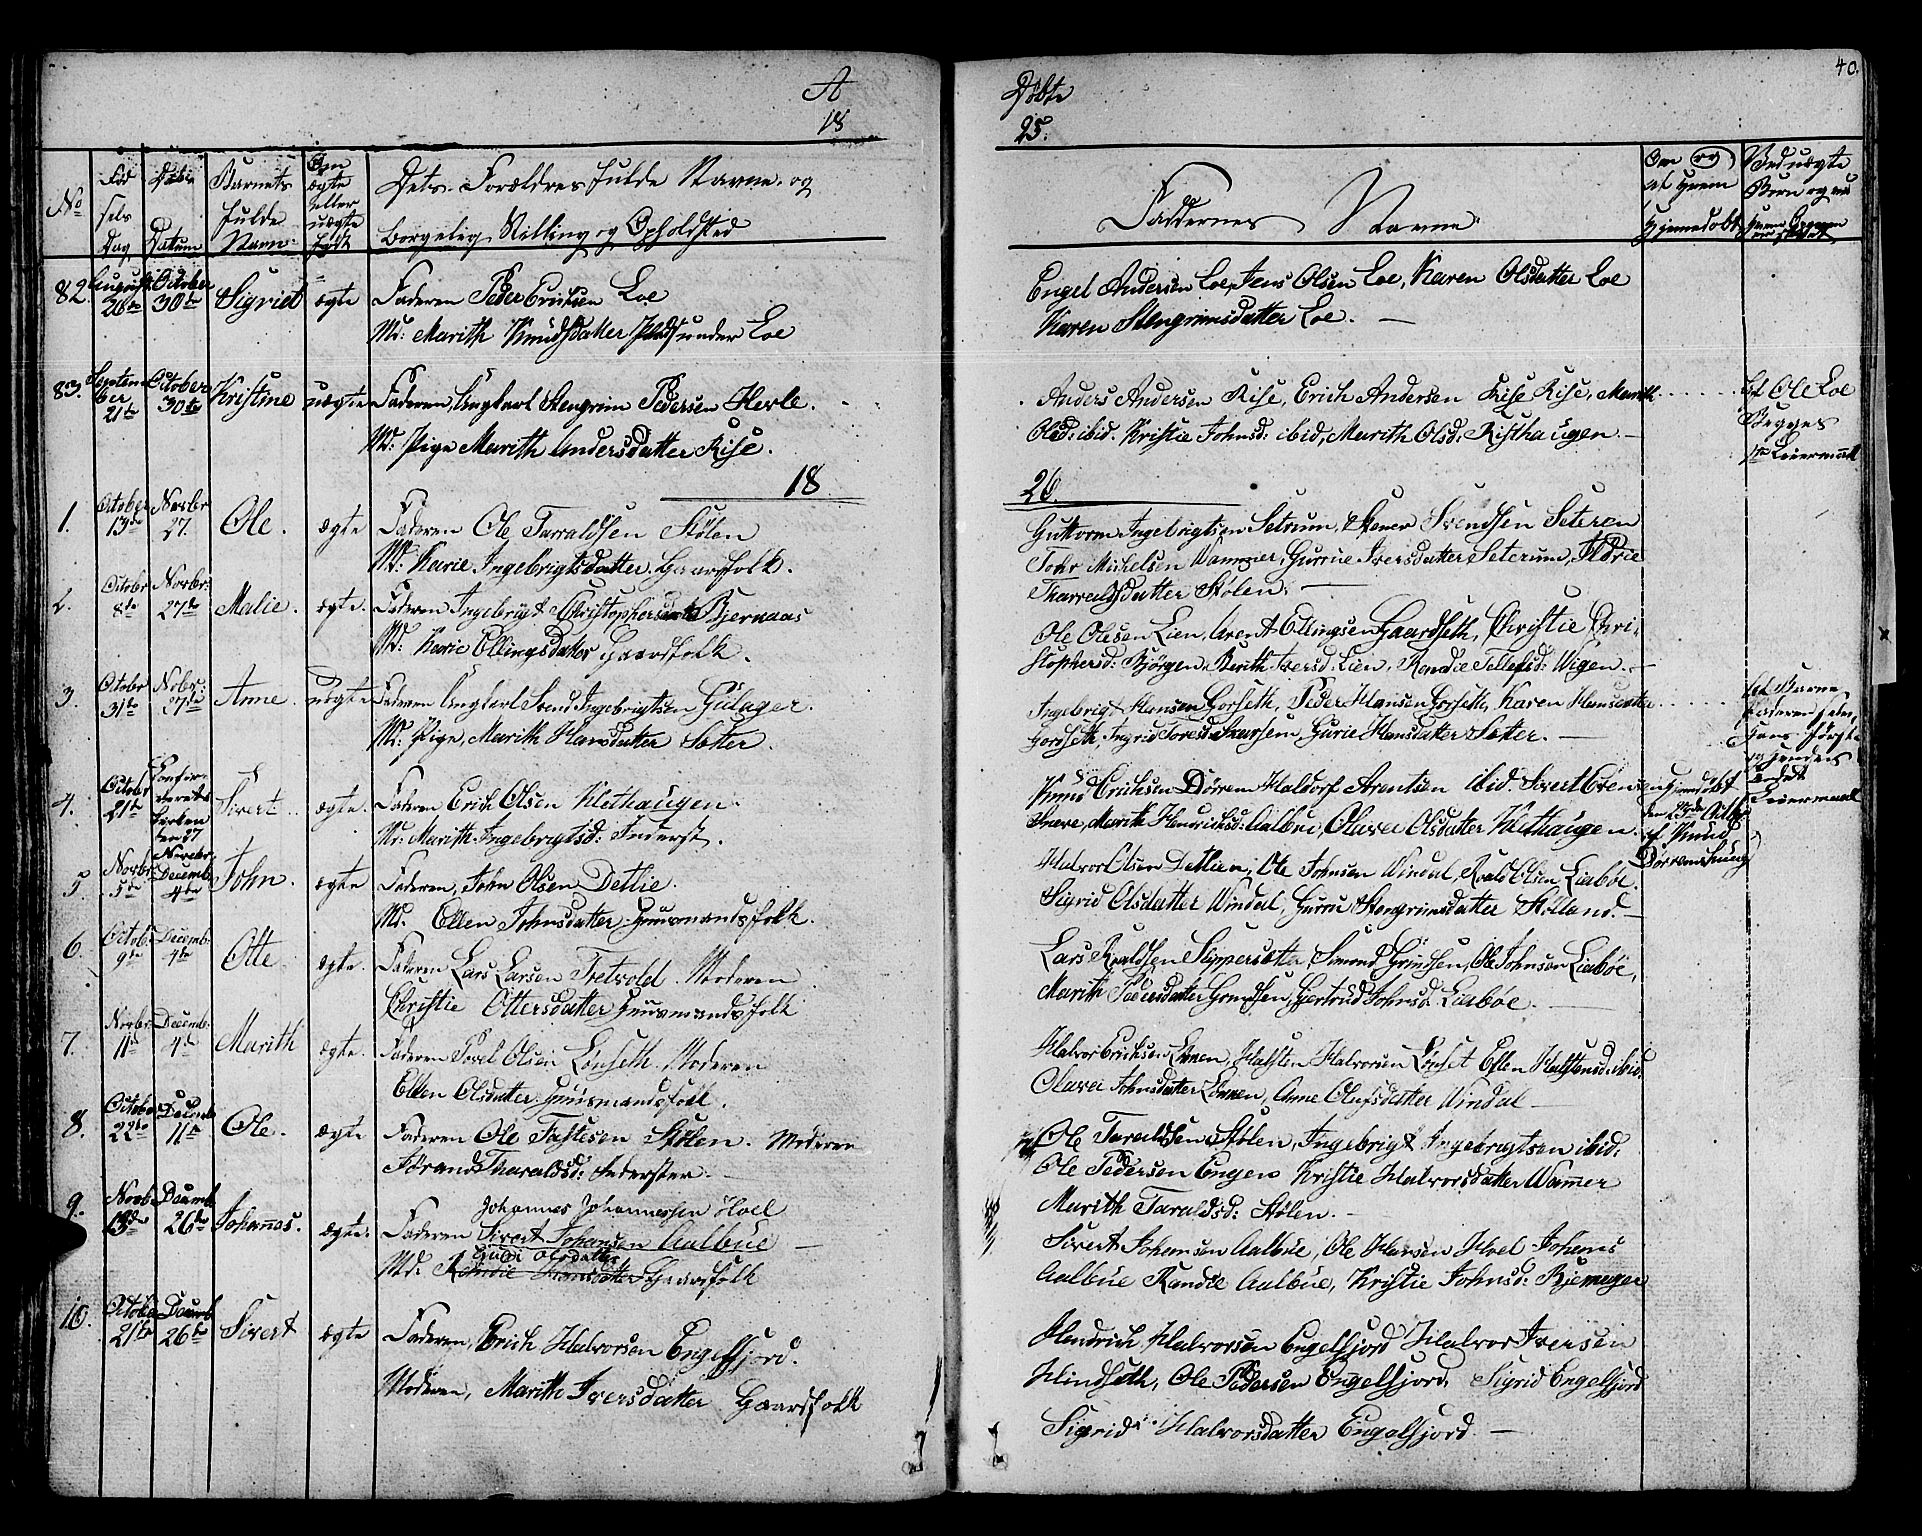 A
18
No
Fød
sels
Dag
Døbe
Datum
Barnets
fulde
Navn
Om
ægte
eller
uægte
født
Dets Forældres fulde Navne og
borgelig Stilling og Opholdsted
82. August 26de October 30te Sigriet ægte Faderen Peder Erichsen Loe
Md: Marith Knudsdatter under Loe
83. September 21de October 30te Kristine uægte Faderen, Ungkarl Stengrim Pedersen Herle.
Md: Pige Marith Andersdatter Rise.
18
1. October 13de Novbr 27. Ole. ægte Faderen Ole Tarraldsen Stølen
Md: Karie Ingebrigtsdatter Gaardfolk.
2. Octobr 8de Novbr: 27de Malie. ægte. Faderen Ingebrigt Bjernaas
Md: Karie Ellingsdatter Gaardfolk.
3. Octobr 31te Nobr: 27de Anne uægte Faderen Ungkarl Svend Ingebrigtsen Gulager.
Md: Pige, Marith Hansdatter Sæter.
4. Octobr 21de ten 27 Novbr. Sivert ægte. Faderen Erich Olsen Klethaugen.
Md: Marith Ingebrigtsd: Inderst.
5 Novbr 5te Decemb 4de John. ægte Faderen, John Olsen Detlie.
Md. Ellen Johnsdatter Huusmandsfolk.
6. Octob 9de Decemb: 4de Otte ægte. Faderen Lars Larsen Tretvold. Moderen
Christie Ottersdatter Huusmandsfolk
7. Novbr: 11te Decemb: 4de Marith ægte. Faderen Povel Olsen Lønseth. Moderen
Ellen Olsdatter. Huusmandsfolk.
8. October 22de Decemb 11te Ole. ægte Faderen Ole Tastesen Stølen. Moderen
Tharaldsd: Inderster.
9. Novb 13de Decemb 26de Johannes. ægte. Johannes Johannessen Hoel
Faderen Sivert Johansen Aalbue
Guru Olsdatter
Md: Gaardfolk
10. October 21te Decemb 26de Sivert ægte Faderen, Erich Halvorsen Engelsfjord.
Moderen, Marith Iversdatter Gaardfolk
Døbte
25.
40.
Faddernes Navne
Om og
af hvem
hjemmedøbt
Ved uægte
Børn og
Engel Andersen Loe, Jens Olsen Loe, Karen Olsdatter Loe
Karen Stengrimsdatter Loe.
Anders Andersen Rise, Erich Andersen Rise, Marith
Olsd: ibid. Kristie Johnsd: ibid, Marith Olsd: Risthaugen.
Ole Loe
Begges
1te Leiermaal
26.
Guttorm Ingebrigtsen Setrum, Stener Svendsen Seteren
Tohr Michelsen Wammer, Gurrue Iversdatter Seterum, Ildrie
Tharraldsdatter Stølen.
Ole Olesen Lien, Arent Ellingsen Gaardseth, Christie Chri-
stophersd: Bjørgen, Berith Iversd. Lien, Randie Tellefsd: Wigen.
Ingebrigt Hansen Gorseth, Peder Hansen Gorseth, Karen Hansdatter
Gorseth, Ingrid Toresd. Skarsem, Gurie Hansdatter Sæter.
Knud Erichsen Dørrem Haldorf Arentsen ibid. Sivert
Snere, Marith Hendrichsd: Aalbue, Olava Olsdatter Klethaugen.
hjemdøbt
den 23de Octbr
af Knud
Leiermaal
Halvor Olsen Detlien, Ole Johnsen Windal, Roald Olsen Liabøe.
Sigrid Olsdatter Windal, Gurru Stengrimsdatter Stølland.
Lars Roaldsen Slippersetter, Simond Grindsen, Ole Johnsen Liabøe,
Marith Pedersdatter Grindsen, Gjertrud Johnsd. Liabøe
Halvor Erichsen Lønnen, Halsten Halvorsen Lønset Ellen Halstensd: ibid:
Olava Johnsdatter Lønnen, Anne Olufsdatter Windal
Ole Taraldsen Stølen, Ingebrigt Ingebrigtsen ibid:
Ole Pedersen Engen Kristie Halvorsdatter Wamer
Marith Taraldsd: Stølen.
Sivert Johansen Aalbue, Ole Hansen Hoel Johans
Aalbue Randie Aalbue, Kristie Johnsd:
Hendrich Halvorsen Engelsfjord Halvor Iversen
Hindseth, Ole Pedersen Engelsfjord, Sigrid Engelsfjord
Sigrid Halvorsdatter Engelsfjord